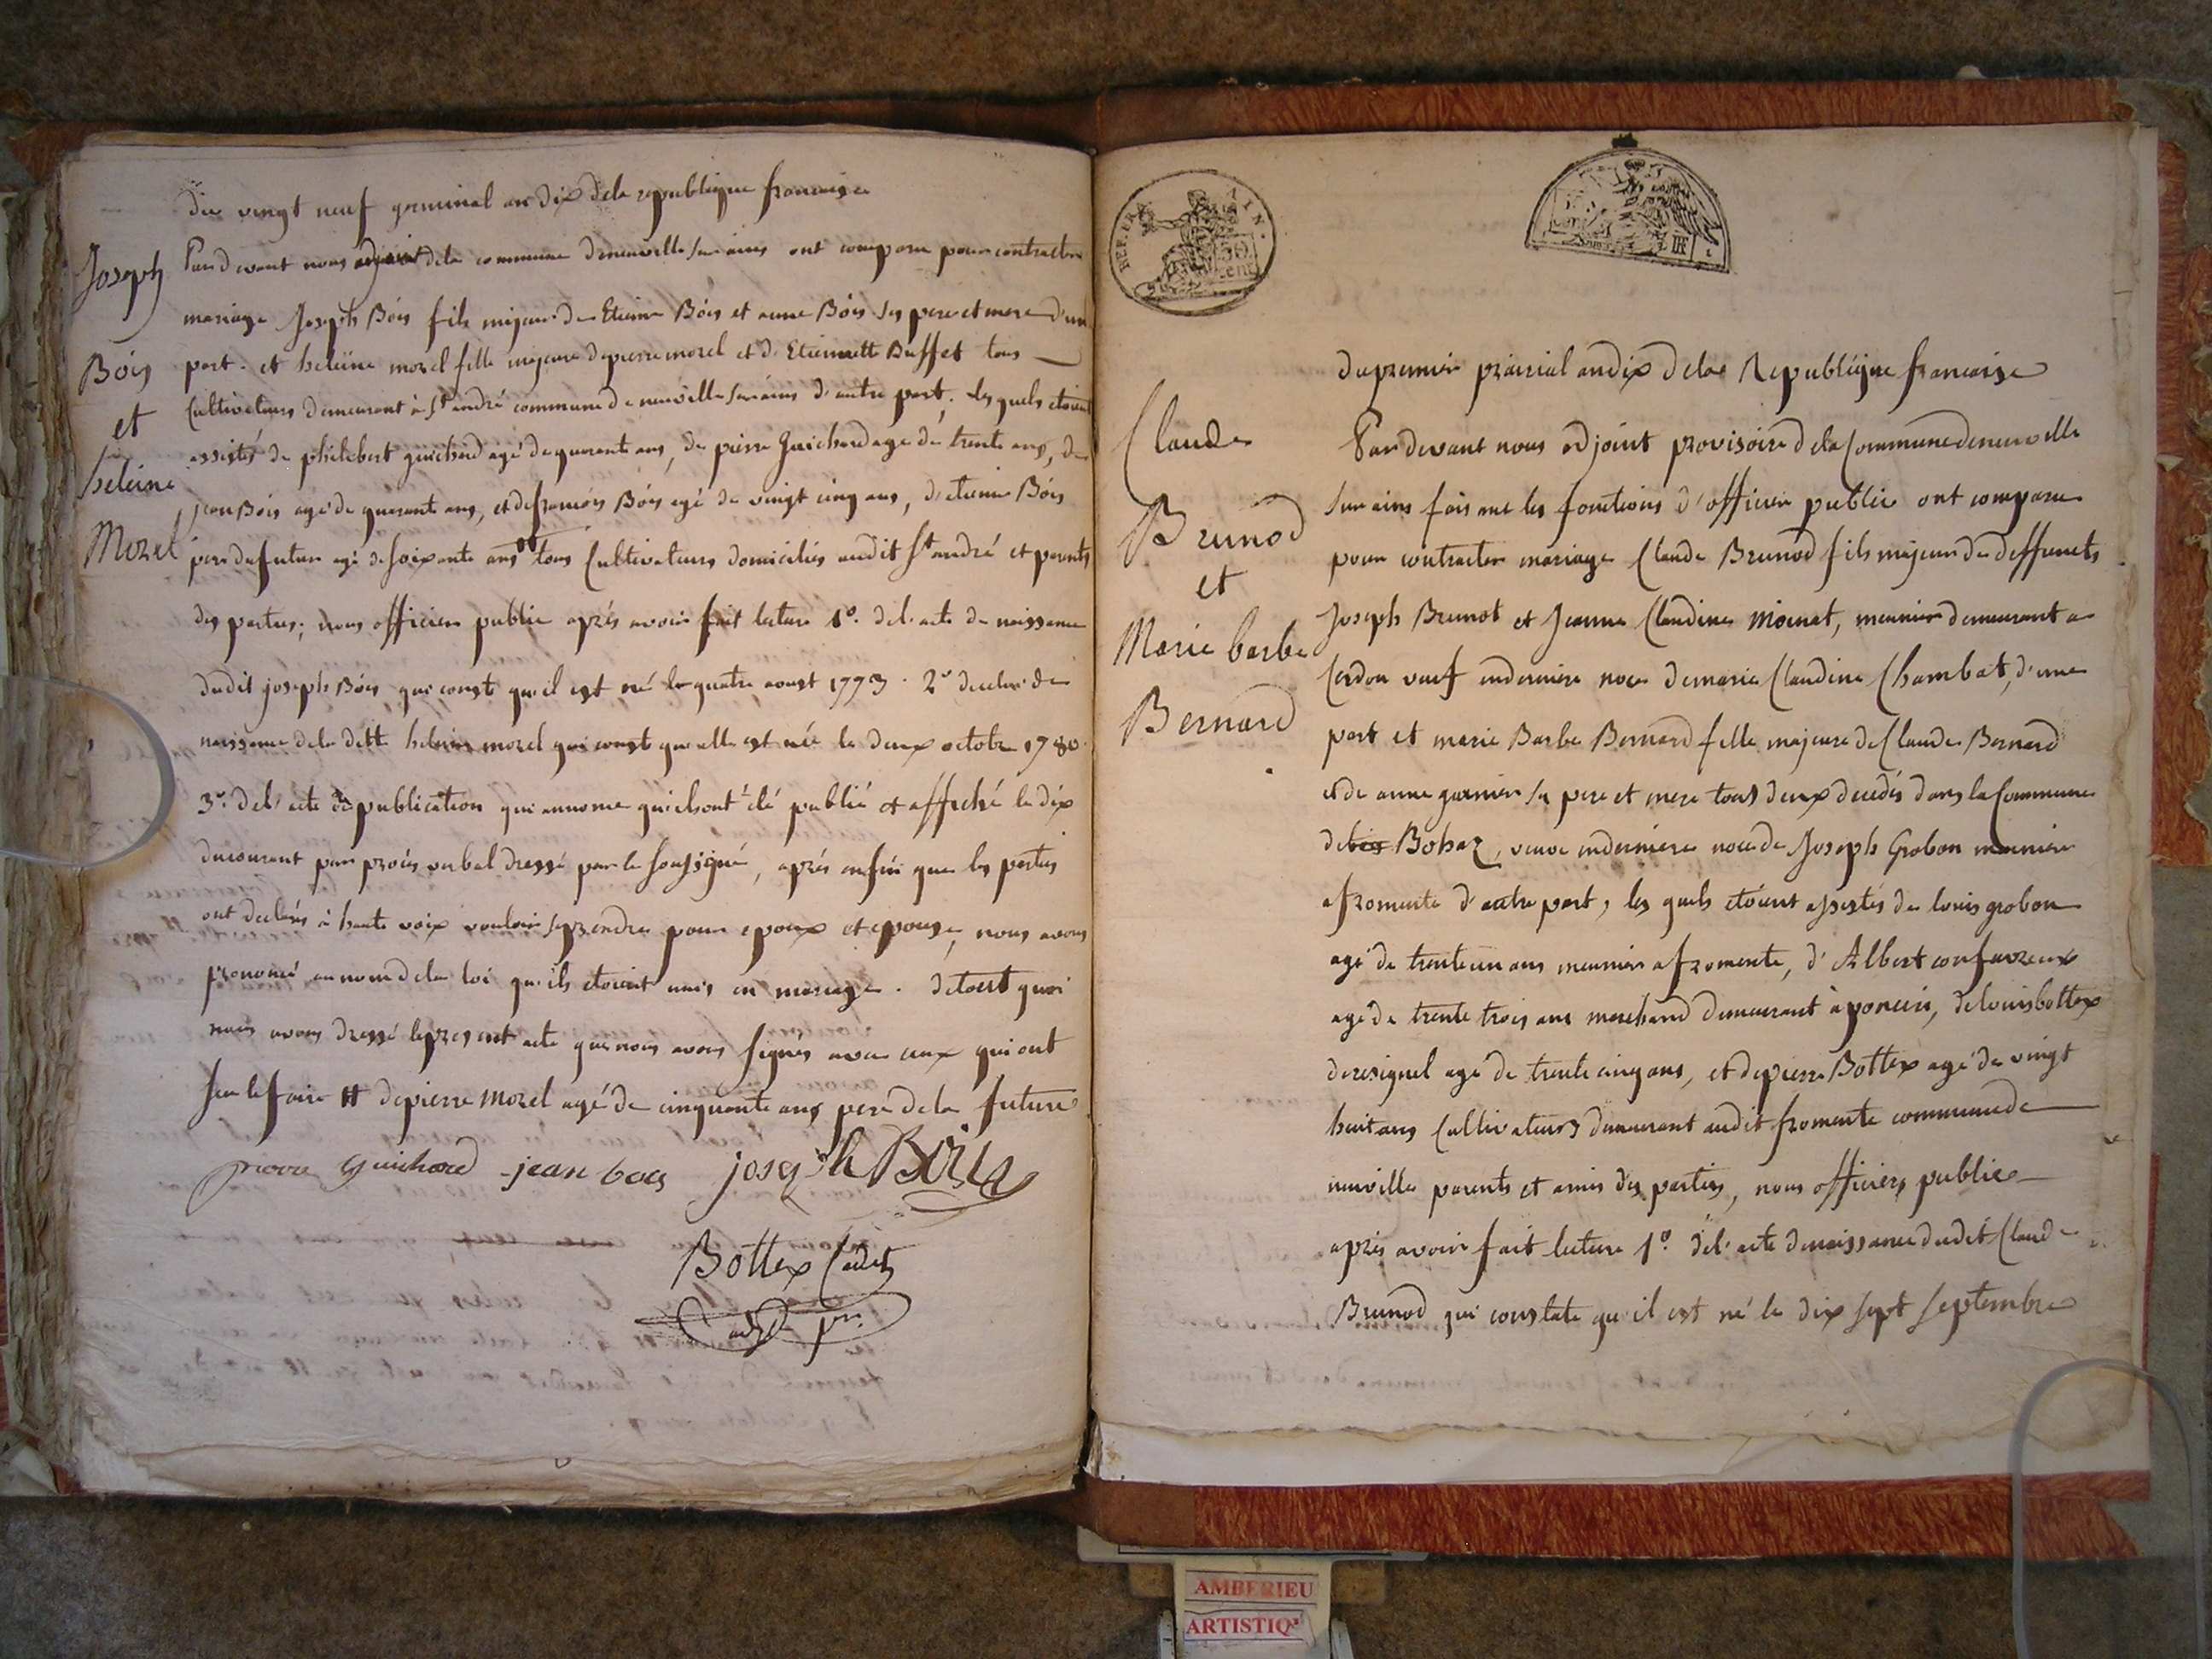 du vingt neuf germinal an dix dela republique francaise
Joseph
Bois
et
heleine
Morel
Pardevant nous adjoint dela commune deneuville sur ains ont comparu pour contracter
mariage Joseph Bois fils majeur de Etienne Bois et anne Bois ses pere et mere d'une
part. et heleine morel fille majeure depierre morel et d'Etiennette Buffet tous
Cultivateurs demeurant à St andré commune de neuville sur ains d'autre part. les quels etoient
assistés de philebert guichard agé de quarante ans, de pierre Guichard age de trente ans, de
jean Bois agé de quarante ans, et defrancois Bois agé de vingt cinq ans, d'etienne Bois
pere dufutur agé de soixante ans # tous Cultivateurs domiciliés audit St andré et parents
des parties; nous officier public aprés avoir fait lecture 1º. del'acte de naissance
dudit joseph Bois qui const qu'il est né le quatre aoust 1773. 2º de celui de
naissance dela ditte heleine morel qui const quelle est née le deux octobre 1780.
3º. del'acte de publication qui annonce quils ont été publié et affiché le dix
ducourant par procés verbal dressé par le Soussigné, aprés enfin que les parties
ont declarés à haute voix vouloir seprendre pour epoux et epouse, nous avons
prononcé aunom dela loi qu'ils etoient unis en mariage. detout quoi
nous avons dressé lepresent acte que nous avons signés avec ceux qui ont
sçu lefaire # depierre Morel agé de cinquante ans pere dela future
pierre Guichard jean bois joseph Bois
Bottex Cadet
adj pr.
REP. FRA. AIN.
50
cent
dupremier prairial andix dela Republique francaise
Claude
Brunod
et
Marie barbe
Bernard
Pardevant nous adjoint provisoire dela Commune deneuville
sur ains faisant les fonctions d'officier public ont comparu
pour contracter mariage Claude Brunod fils majeur de deffunts
Joseph Brunot et Jeanne Claudine Moinat, meunier demeurant a
Cerdon veuf enderniere noce demarie Claudine Chambat, d'une
part et marie Barbe Bernard fille majeure de Claude Bernard
et de anne garnier ses pere et mere tous deux decedés dans la Commune
de Bohaz, veuve enderniere noce de Joseph Grobon meunier
afromente d'autre part, les quels etoient assistés de louis grobon
agé de trenteun ans meunier afromente, d'Albert confavreux
agé de trente trois ans marchand demeurant à poncin, delouis bottex
deresignel agé de trente cinq ans, et depierre Bottex agé de vingt
huit ans Cultivateurs demeurant audit fromente commune de
neuville parents et amis des parties, nous officiers public
après avoir fait lecture 1º. del'acte denaissance dudit Claude
Brunod qui constate qu'il est né le dix sept septembre
AMBERIEU
ARTISTIQ